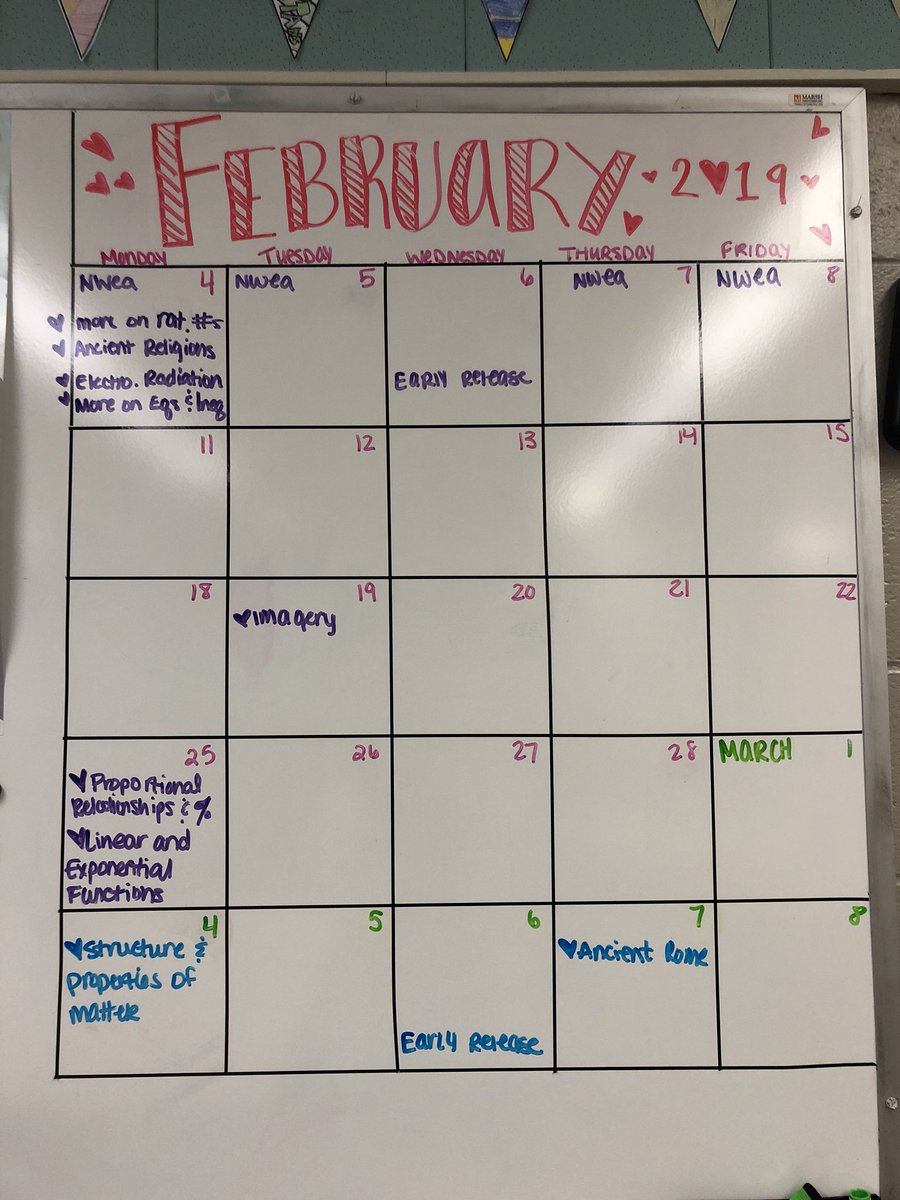 MARSH
FEBRUARY 2019
MONDAY TUESDAY WEDNESDAY THURSDAY FRIDAY
NWea 4 NWea 5 6 NWea 7 NWea 8
more on rat. #s
Ancient Religions
Electro. Radiation
More on Eqs & Ineq
Early Release
11 12 13 14 15
18 19 20 21 22
Imagery
25 26 27 28 MARCH 1
Proportional
Relationships & %
Linear and
Exponential
Functions
4 5 6 7 8
Structure &
properties of
matter
Ancient Rome
Early Release